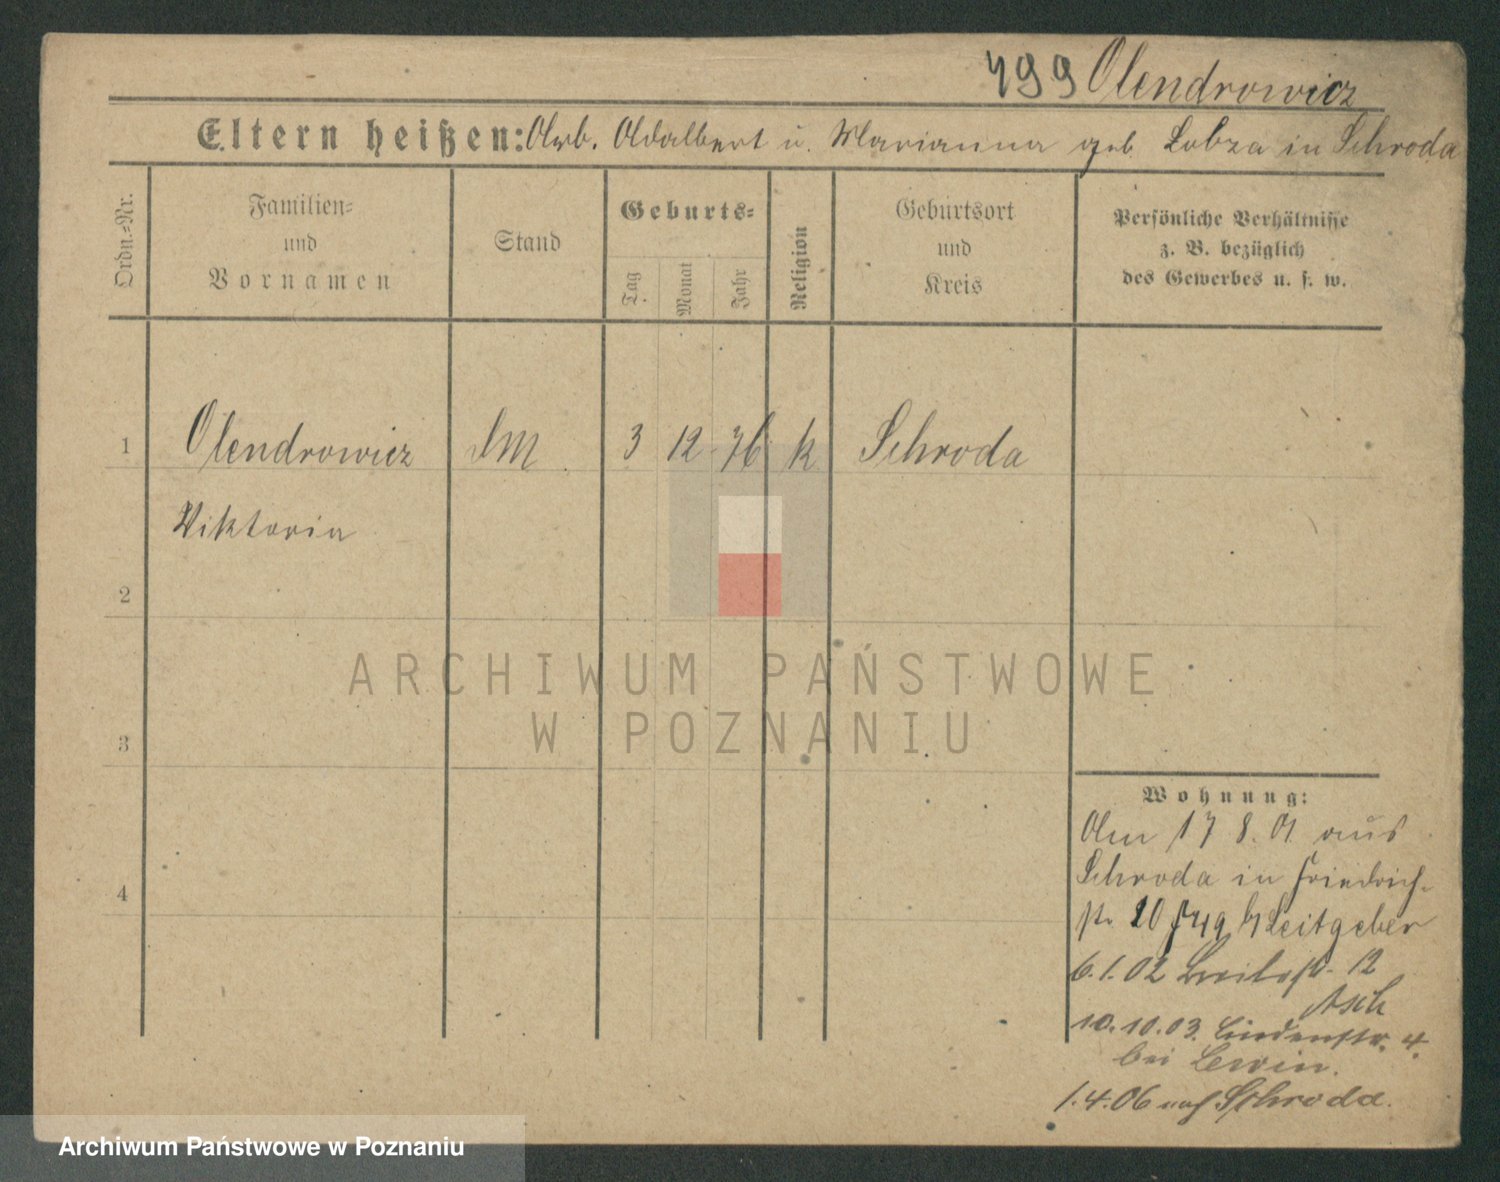 499 Olendrowicz
Eltern heißen: Arb. Adalbert u. Marianna geb Lobza in Schroda
Ordn.=Nr.
Familien=
und
Vornamen
Stand
Geburts=
Tag
Monat
Jahr
Religion
Geburtsort
und
Kreis
Persönliche Verhältnisse
z. B. bezüglich
des Gewerbes u. s. w.
1 Olendrowicz 3 12 76 k Schroda
Viktoria
2
3
4
ARCHIWUM PAŃSTWOWE
W POZNANIU
Wohnung:
Am 17 8. 01 aus
Schroda in Friedrich-
str 10 b Leitgeber
6.1.02 Breitestr. 12
Asch
10.10.03. Lindenstr. 4.
bei Lewin.
1.4.06 nach Schroda.
Archiwum Państwowe w Poznaniu